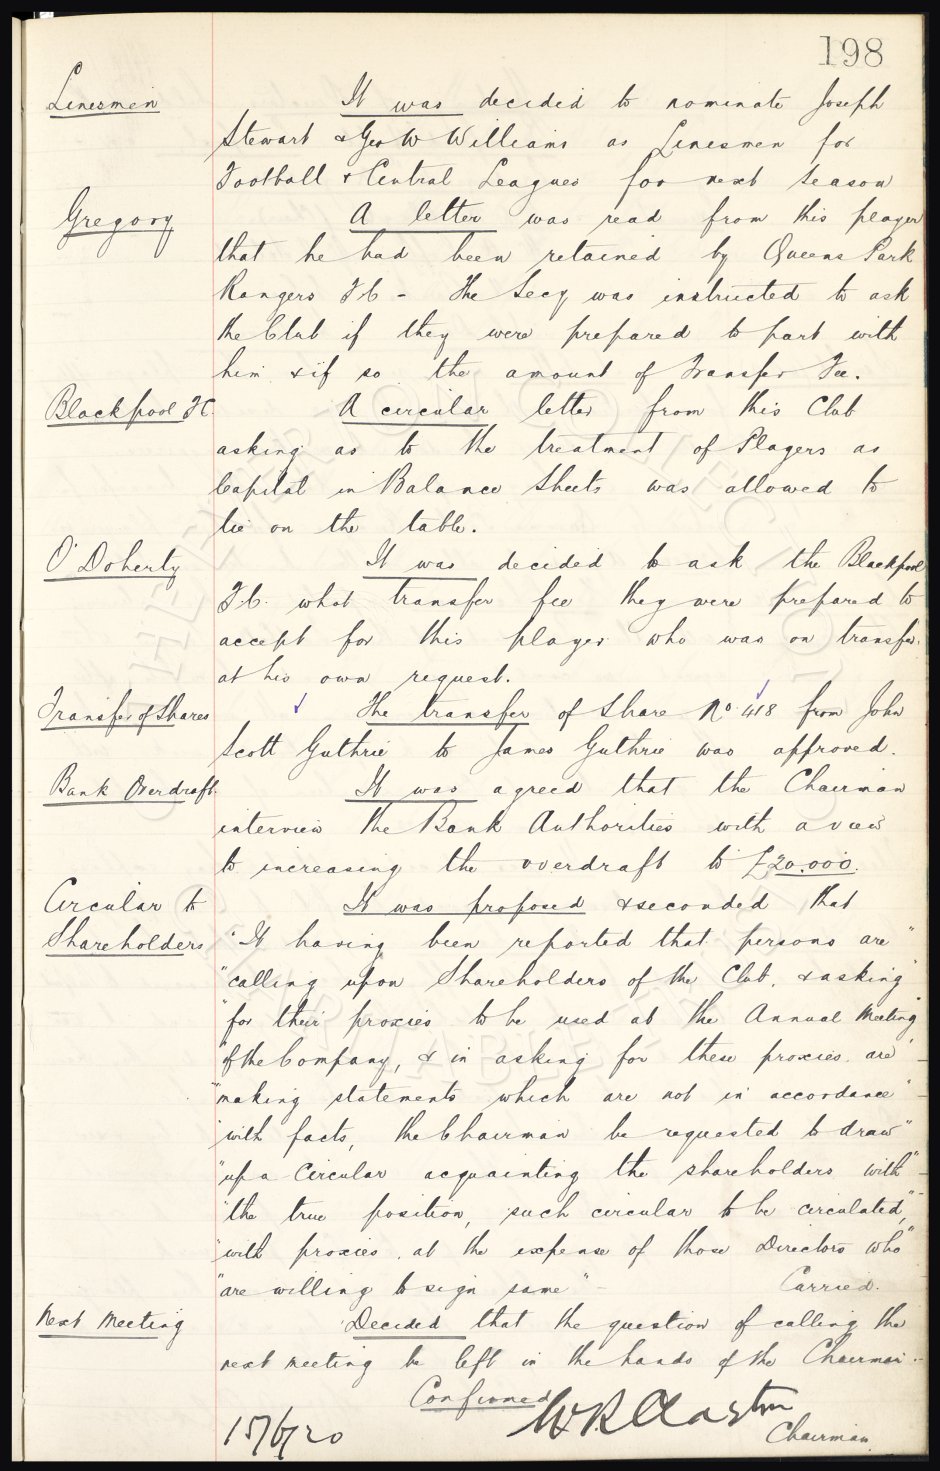 198
Linesmen
It was decided to nominate Joseph
Stewart & Geo W Williams as Linesmen for
Football & Central Leagues for next season
Gregory
A letter was read from this player
that he had been retained by Queens Park
Rangers F.C - The Secy was instructed to ask
the Club if they were prepared to part with
him & if so the amount of Transfer Fee.
Blackpool FC.
A circular letter from this Club
asking as to the treatment of Players as
Capital in Balance Sheets was allowed to
lie on the table.
O'Doherty
It was decided to ask the Blackpool
F.C. what transfer fee they were prepared to
accept for this player who was on transfer
at his own request.
Transfer of Shares
The transfer of Share No 418 from John
Scott Guthrie to James Guthrie was approved.
Bank Overdraft
It was agreed that the Chairman
interview the Bank Authorities with a view
to increasing the overdraft to £20,000.
Circular to
Shareholders
It was proposed & seconded that
"It having been reported that persons are"
"calling upon Shareholders of the Club, & asking"
"for their proxies to be used at the Annual Meeting"
"of the Company, & in asking for these proxies are"
"making statements which are not in accordance"
"with facts, the Chairman be requested to draw"
"up a Circular acquainting the shareholders with"
"the true position, such circular to be circulated,"
"with proxies, at the expense of those Directors who"
"are willing to sign same" - Carried.
Next Meeting
Decided that the question of calling the
next meeting be left in the hands of the Chairman.
Confirmed
15/6/20
W R Clayton
Chairman